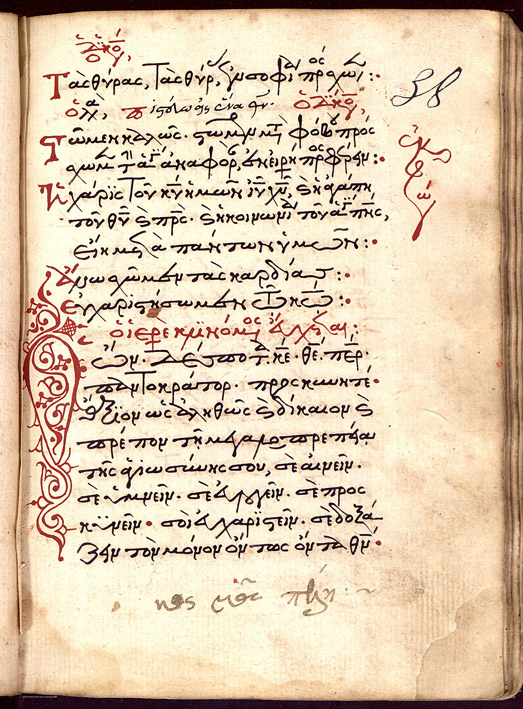 ὁ διάκο,
Τὰς θύρας, τὰς θύρ, ἐν σοφί πρόσχωμ:
ὁ λα, Πιστεύω εἰς ἕνα θν. ὁ διάκο,
Στῶμεν καλῶς. στῶμεν μετὰ φόβου πρός
χωμ τὴν ἁγί ἀναφορ, ἐν εἰρήνη προσφέρειν:
Ἡ χάρις τοῦ κυ ἡμῶν ιυ χυ, καὶ ἡ ἀγάπη
τοῦ θυ καὶ πρς. καὶ ἡ κοινωνία τοῦ ἁγί πνς,
εἴη μετὰ πάντων ὑμῶν:
Ἄνω σχῶμεν τὰς καρδίας:
Εὐχαριστήσωμεν τῷ κω:
ὁ ἱερεὺς εὔχεται:
Ὁ ὤν. Δέσποτα κε. θε. περ.
παντοκράτορ. προσκυνητέ.
ἄξιον ὡς ἀληθῶς καὶ δίκαιον καὶ
πρέπον τῇ μεγαλοπρεπεία
τῆς ἁγιωσύνης σου, σὲ αἰνεῖν.
σὲ ὑμνεῖν. σὲ εὐλογεῖν. σὲ προς
κυνεῖν. σοὶ εὐχαριστεῖν. σὲ δοξά
ζειν τὸν μόνον ὄντως ὄντα θν.